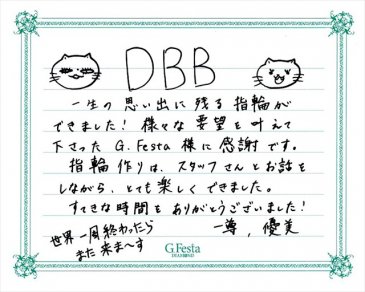 DBB
一生の思い出に残る指輪が
できました！様々な要望を叶えて
下さった G.Festa 様に感謝です。
指輪作りは、スタッフさんとお話を
しながら、とても楽しくできました。
すてきな時間をありがとうございました！
世界一周終わったら
また来ま〜す
一尊, 優美
G.Festa
DIAMOND